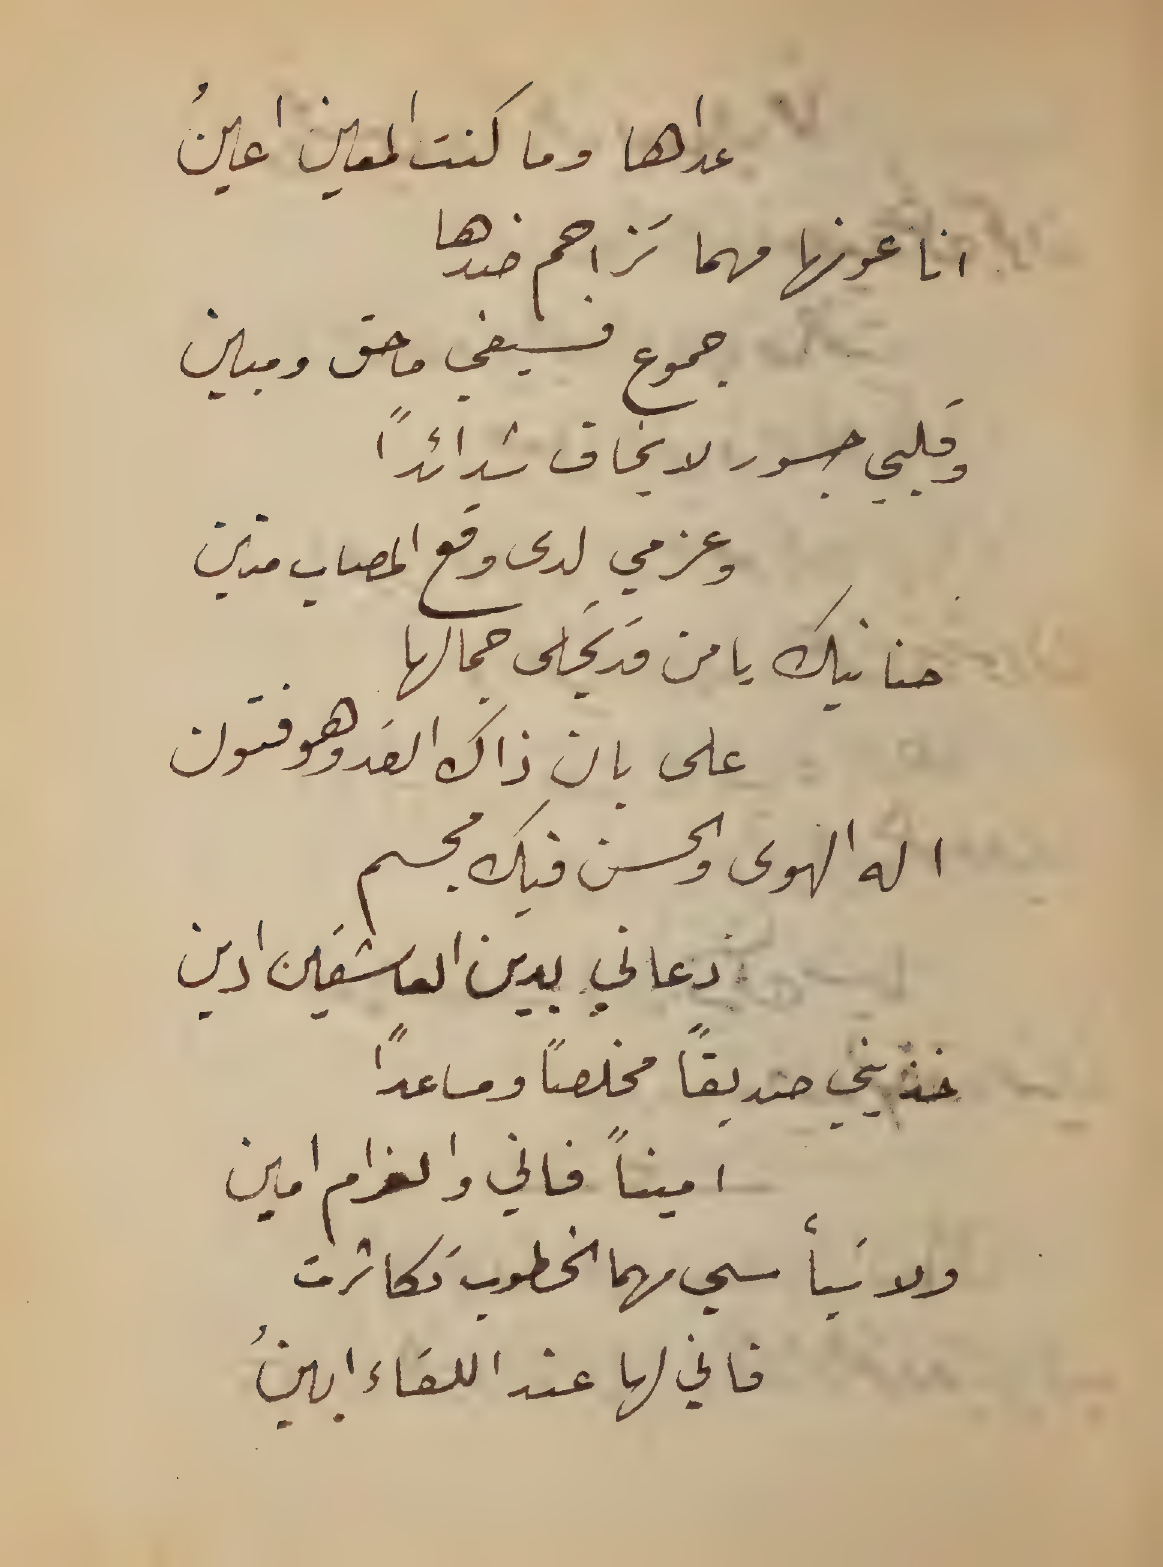 عداها وما كنت المعين اعينُ
انا عونها مهما تزاحم ضدها
جموع فسيفي ماحق ومبين
وقلبي جسور لا يخاف شدائداً
وعزمي لدى وقع المصاب متين
حنانيك يا من قد تجلى جمالها
على بان ذاك القد وهو فتون
اله الهوى والحسن فيك مجسم
دعاني بدين العاشقين ادين
خذيني صديقاً مخلصاً ومساعداً
اميناً فاني والغرام امين
ولا تيأسي مهما الخطوب تكاثرت
فاني لها عند اللقاء ابينُ